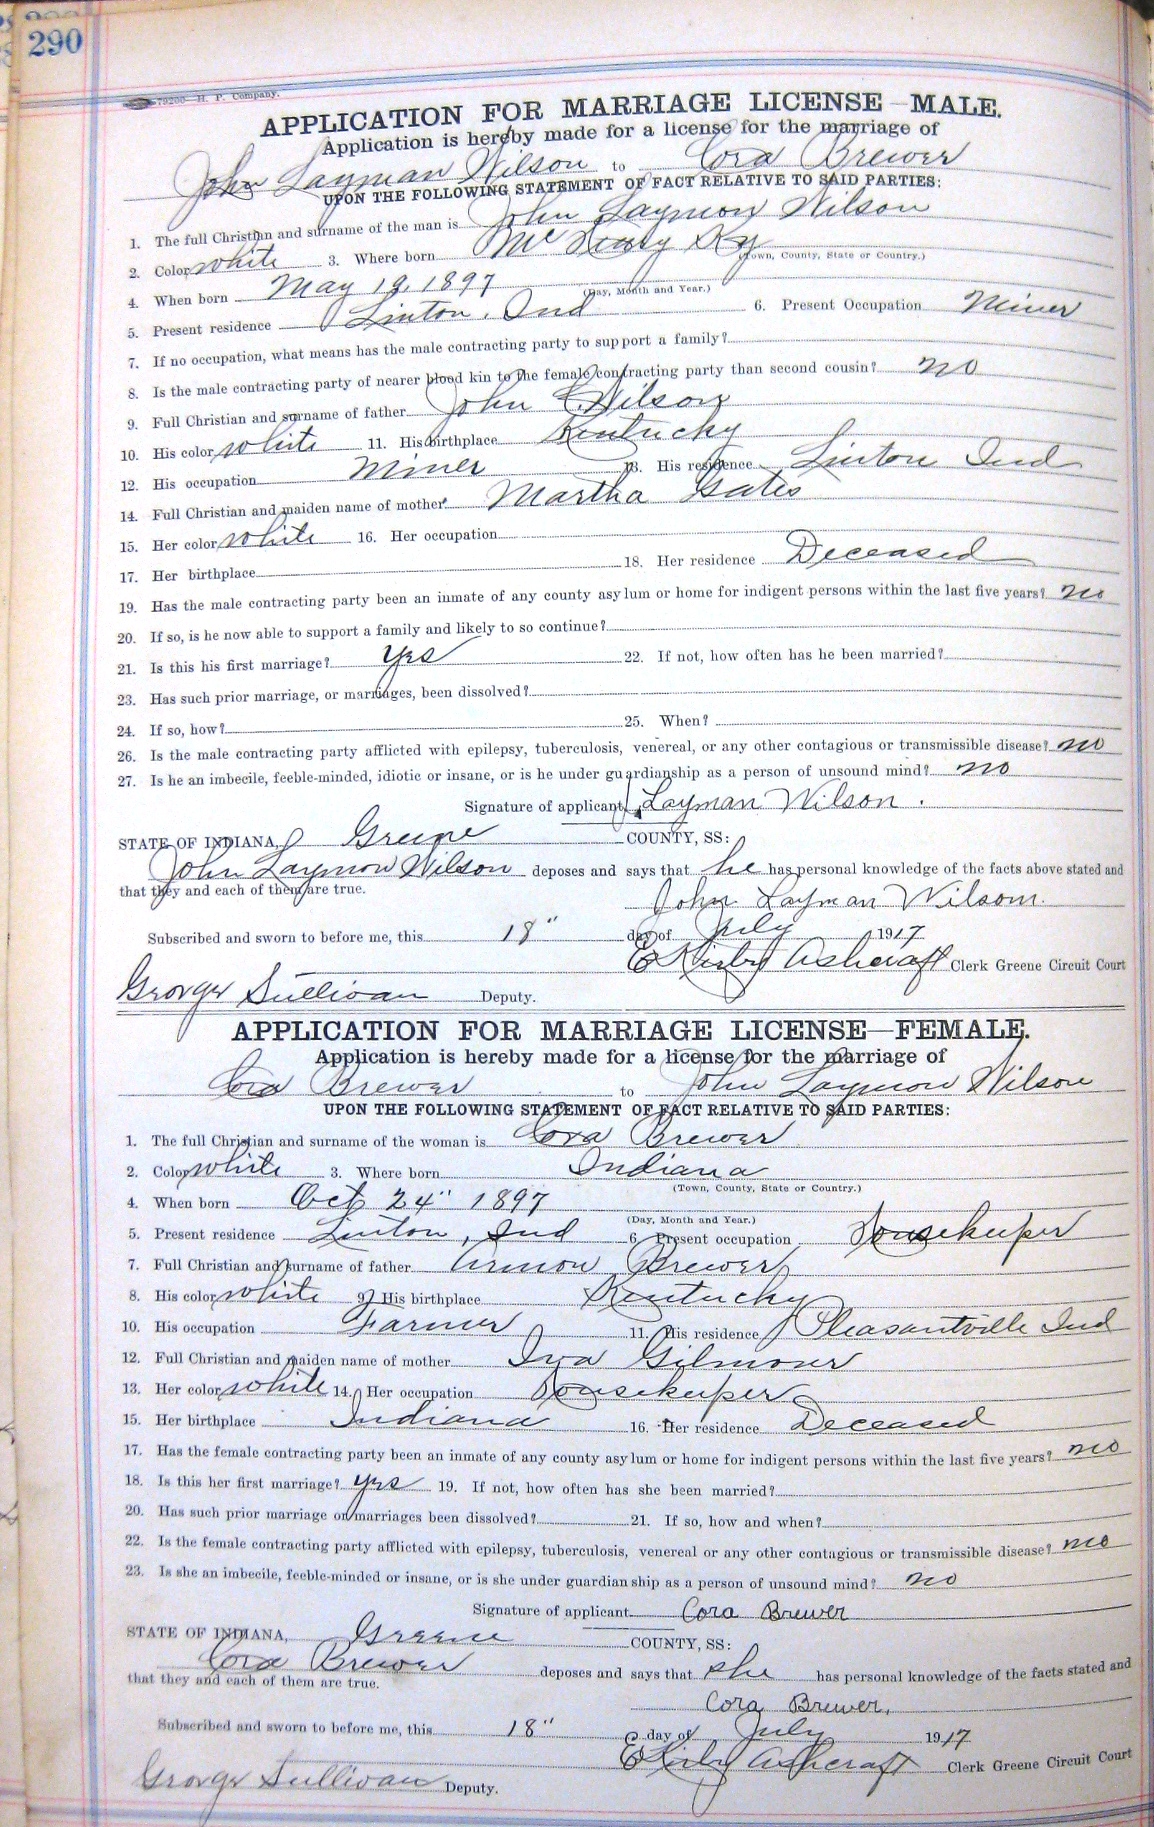 290
79200—H. P. Company.
APPLICATION FOR MARRIAGE LICENSE—MALE.
Application is hereby made for a license for the marriage of
John Layman Wilson to Cora Brewer
UPON THE FOLLOWING STATEMENT OF FACT RELATIVE TO SAID PARTIES:
1. The full Christian and surname of the man is John Laymon Wilson
2. Color white 3. Where born Mc Ky
(Town, County, State or Country.)
4. When born May 19 1897
(Day, Month and Year.)
5. Present residence Linton, Ind 6. Present Occupation Miner
7. If no occupation, what means has the male contracting party to support a family?
8. Is the male contracting party of nearer blood kin to the female contracting party than second cousin? no
9. Full Christian and surname of father John Wilson
10. His color white 11. His birthplace Kentucky
12. His occupation Miner 13. His residence Linton Ind
14. Full Christian and maiden name of mother Martha Gates
15. Her color white 16. Her occupation
17. Her birthplace 18. Her residence Deceased
19. Has the male contracting party been an inmate of any county asylum or home for indigent persons within the last five years? no
20. If so, is he now able to support a family and likely to so continue?
21. Is this his first marriage? yes 22. If not, how often has he been married?
23. Has such prior marriage, or marriages, been dissolved?
24. If so, how? 25. When?
26. Is the male contracting party afflicted with epilepsy, tuberculosis, venereal, or any other contagious or transmissible disease? no
27. Is he an imbecile, feeble-minded, idiotic or insane, or is he under guardianship as a person of unsound mind? no
Signature of applicant J. Layman Wilson.
STATE OF INDIANA, Greene COUNTY, SS:
John Laymon Wilson deposes and says that he has personal knowledge of the facts above stated and
that they and each of them are true.
John Layman Wilson.
Subscribed and sworn to before me, this 18" day of July 1917
E Kirby Ashcraft Clerk Greene Circuit Court
George Sullivan Deputy.
APPLICATION FOR MARRIAGE LICENSE—FEMALE.
Application is hereby made for a license for the marriage of
Cora Brewer to John Laymon Wilson
UPON THE FOLLOWING STATEMENT OF FACT RELATIVE TO SAID PARTIES:
1. The full Christian and surname of the woman is Cora Brewer
2. Color white 3. Where born Indiana
(Town, County, State or Country.)
4. When born Oct 24" 1897
(Day, Month and Year.)
5. Present residence Linton, Ind 6. Present occupation Housekeeper
7. Full Christian and surname of father Armon Brewer
8. His color white 9. His birthplace Kentucky
10. His occupation Farmer 11. His residence Pleasantville Ind
12. Full Christian and maiden name of mother Iva Gilmour
13. Her color white 14. Her occupation Housekeeper
15. Her birthplace Indiana 16. Her residence Deceased
17. Has the female contracting party been an inmate of any county asylum or home for indigent persons within the last five years? no
18. Is this her first marriage? yes 19. If not, how often has she been married?
20. Has such prior marriage or marriages been dissolved? 21. If so, how and when?
22. Is the female contracting party afflicted with epilepsy, tuberculosis, venereal or any other contagious or transmissible disease? no
23. Is she an imbecile, feeble-minded or insane, or is she under guardianship as a person of unsound mind? no
Signature of applicant Cora Brewer
STATE OF INDIANA, Greene COUNTY, SS:
Cora Brewer deposes and says that she has personal knowledge of the facts stated and
that they and each of them are true.
Cora Brewer,
Subscribed and sworn to before me, this 18" day of July 1917
E Kirby Ashcraft Clerk Greene Circuit Court
George Sullivan Deputy.